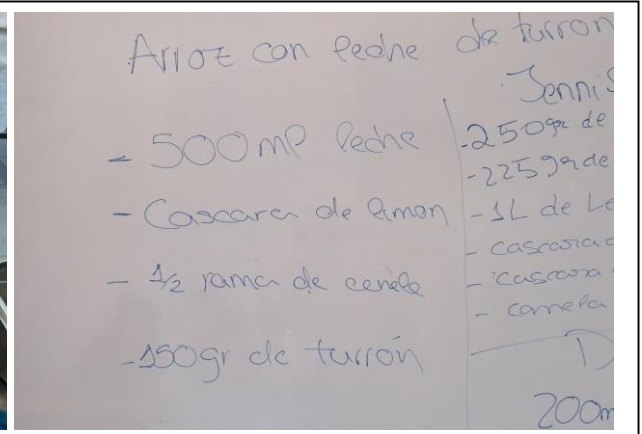 Arroz con leche de turron
- 500ml leche
- Cascara de limon
- 1/2 rama de canela
- 150gr de turrón
- 250gr de
- 225gr de
- 1L de Le
- cascara
- cascara
- canela
D
200m